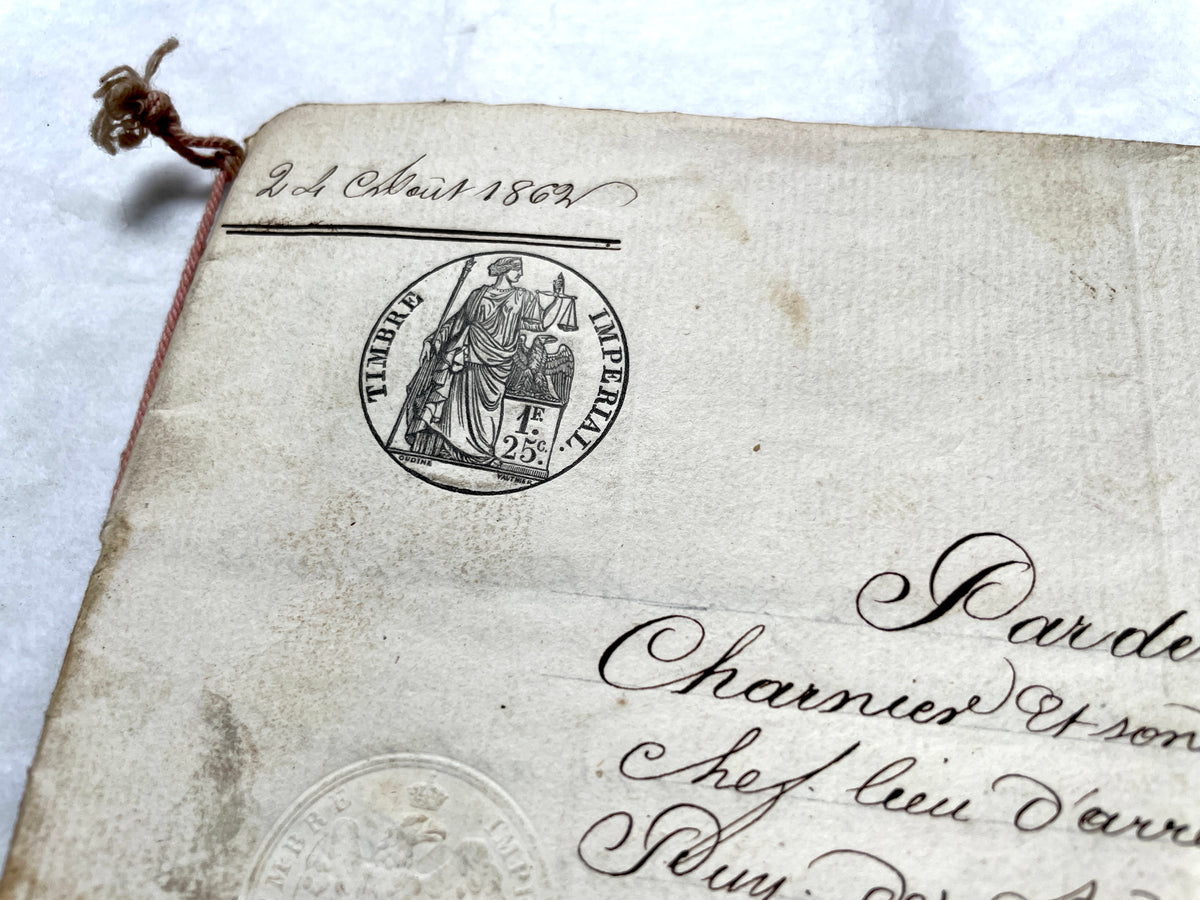 24 Août 1862
TIMBRE IMPERIAL.
1F.
25c.
OUDINE
VAUTHIER
Charnier Et son
chef. lieu d'arr
Puy. de
MBRE IMP